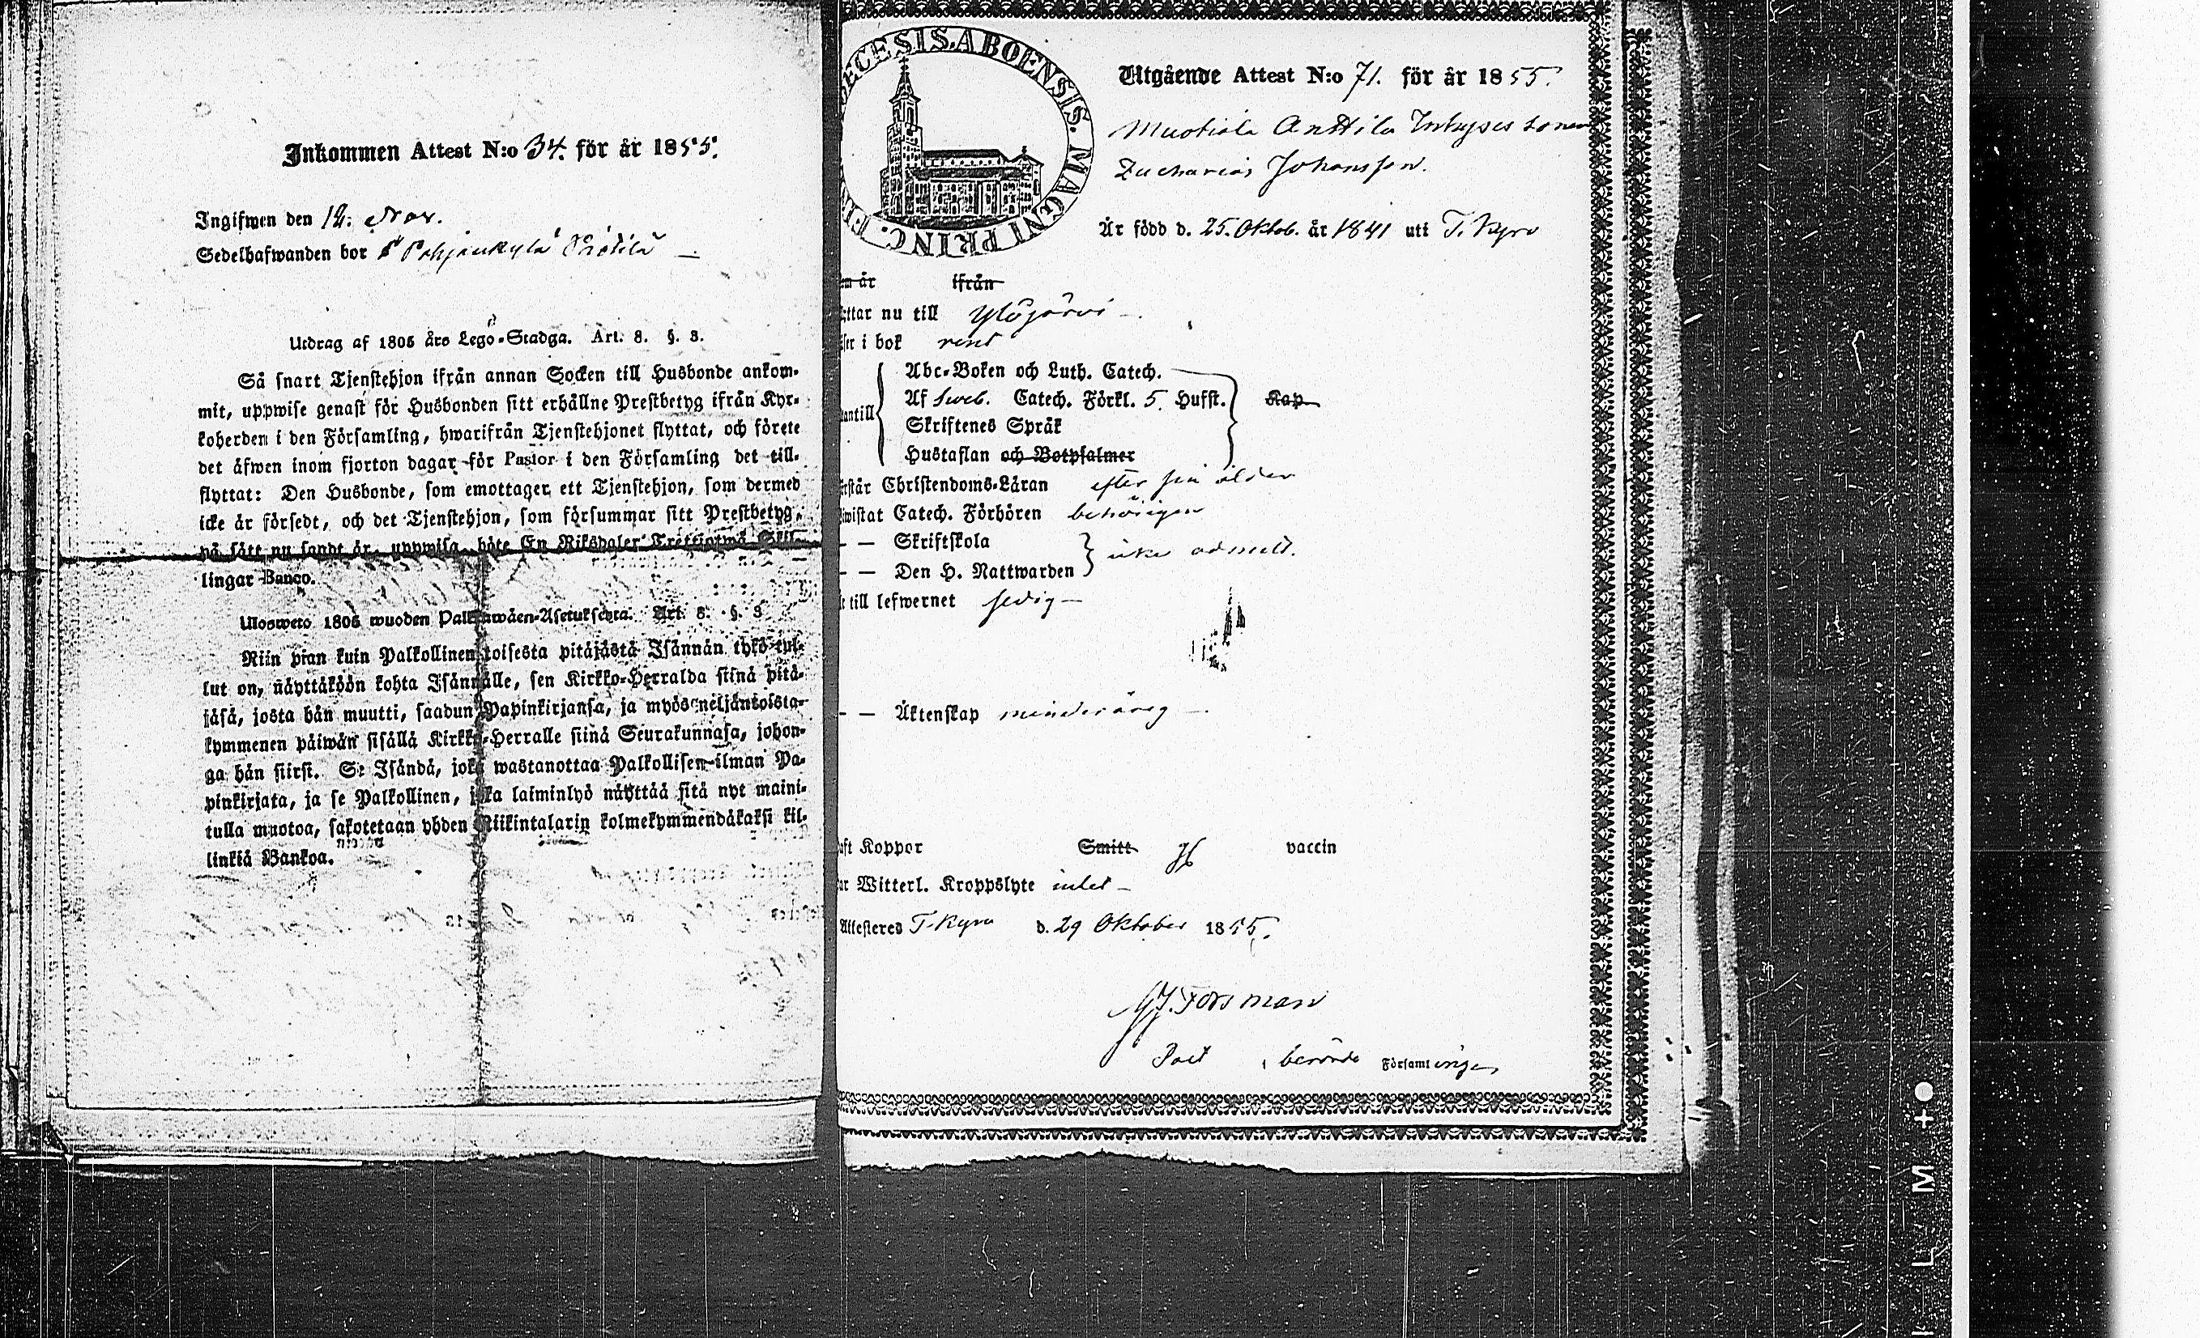 Inkommen Attest N:o 34. för år 1855.
Ingifwen den 12. Nov.
Sedelhafwanden bor i Pohjankylä
Utdrag af 1805 års Lego-Stadga. Art. 8. §. 3.
Så snart Tjenstehjon ifrån annan Socken till Husbonde ankom-
mit, uppwise genast för Husbonden sitt erhållne Prestbetyg ifrån Kyr-
koherden i den Församling, hwarifrån Tjenstehjonet flyttat, och förete
det äfwen inom fjorton dagar för Pastor i den Församling det till-
flyttat: Den Husbonde, som emottager ett Tjenstehjon, som dermed
icke är försedt, och det Tjenstehjon, som försummar sitt Prestbetyg,
på sätt nu sagdt är, uppwisa, böte En Riksdaler Trettiotwå Skil-
lingar Banco.
Ulosweto 1805 wuoden Palkkawäen-Asetuksesta. Art. 8. §. 3
Niin pian kuin Palkollinen toisesta pitäjästä Isännän tykö tul-
lut on, näyttäköön kohta Isännälle, sen Kirkko-Herralda siinä pitä-
jäsä, josta hän muutti, saadun Papinkirjansa, ja myös neljäntoista-
kymmenen päiwän sisällä Kirkko-Herralle siinä Seurakunnasa, johon-
ga hän siirst. Se Isändä, joka wastanottaa Palkollisen ilman Pa-
pinkirjata, ja se Palkollinen, joka laiminlyö näyttää sitä nyt maini-
tulla muotoa, sakotetaan yhden Riikintalarin kolmekymmendäkaksi kil-
linkiä Bankoa.
DIOECESIS. ABOENSIS. MAGNI PRINC. FIN
Utgående Attest N:o 71. för år 1855.
Muotiala Anttila Inhyses sonen
Zacharias Johansson.
Är född d. 25. Oktob. år 1841 uti T. Kyro
år ifrån
ttar nu till Ylöjärvi
i bok rent
Abc-Boken och Luth. Catech.
antill Af Sweb. Catech. Förkl. 5. Husft. Kap
Skriftenes Språk
Hustaflan och Botpsalmer
rstår Christendoms-Läran efter sin ålder
wistat Catech. Förhören behörigen
— — Skriftskola
— — Den H. Nattwarden icke admitt.
till lefwernet sedig
— — Äktenskap minderårig
aft Koppor Smitt af vaccin
ar Witterl. Kroppslyte intet
Attesteres T. Kyro d. 29 Oktober 1855.
Forsman
Past i berörde Församlingen
L M + ●